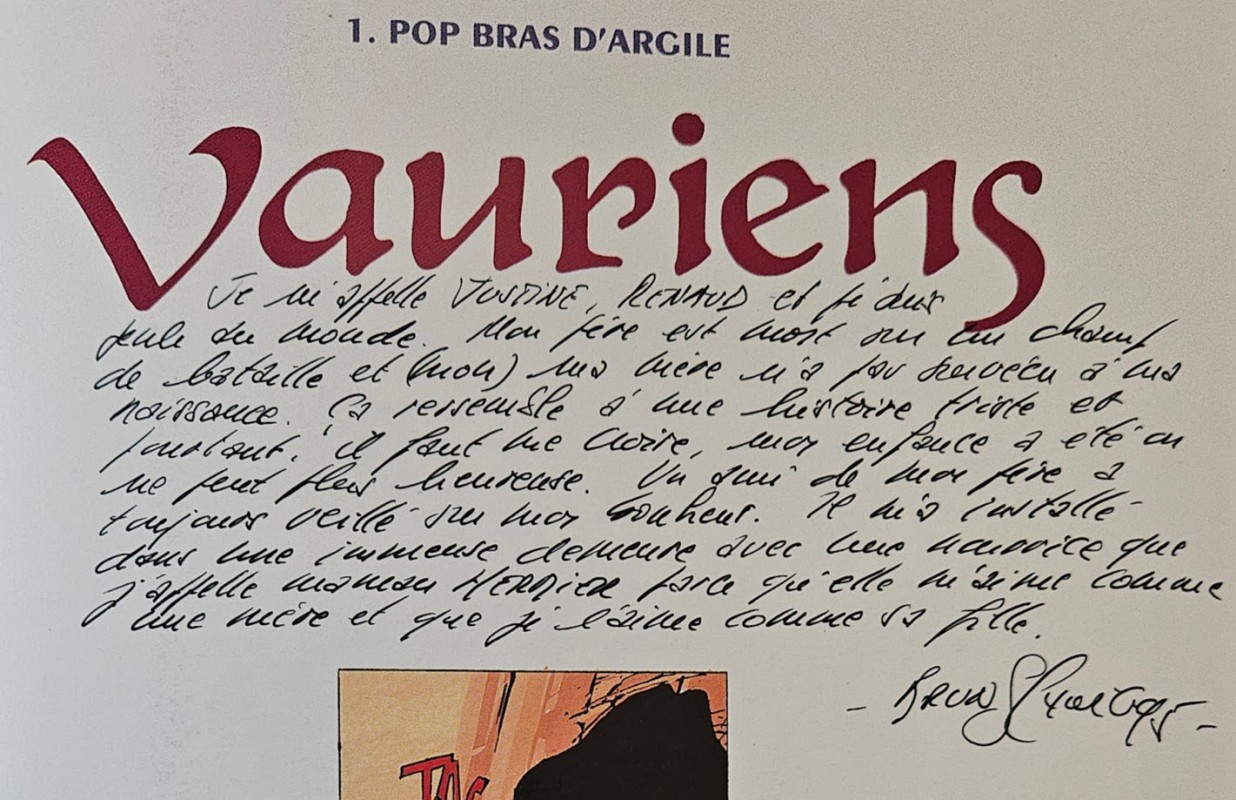 1. POP BRAS D'ARGILE
Vauriens
Je m'appelle JUSTINE, RENAUD et je suis
seule au monde. Mon père est mort sur un champ
de bataille et (mon) ma mère n'a pas survécu à ma
naissance. Ça ressemble à une histoire triste et
pourtant, il faut me croire, mon enfance a été on
ne peut plus heureuse. Un ami de mon père a
toujours veillé sur mon bonheur. Il m'a installé
dans une immense demeure avec une nourrice que
j'appelle maman parce qu'elle m'aime comme
une mère et que je l'aime comme sa fille.
- BRUNO
TAC